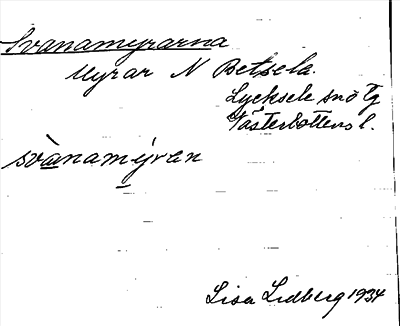 Svanamyrarna
Myrar N Betsela.
Lycksele snö Tg
Västerbottens l.
svànamýren
Lisa Lidberg 1934